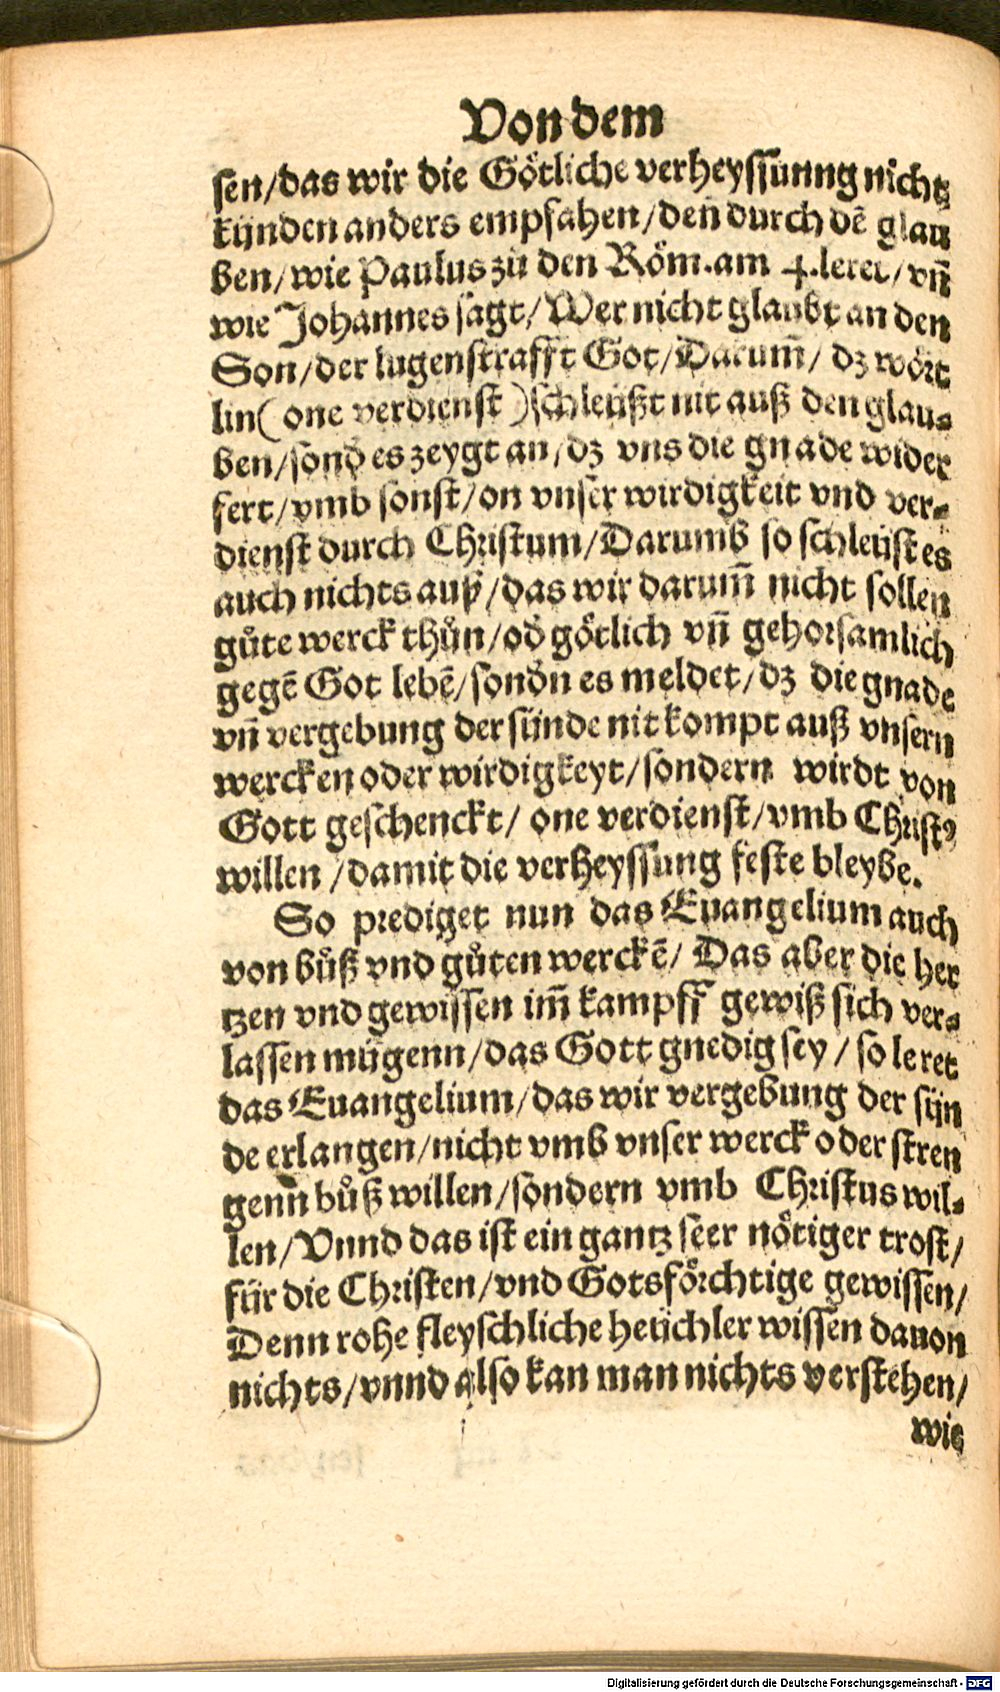 Von dem
sen/das wir die Goͤtliche verheyssunng nichtz
künden anders empfahen/den̄ durch dē glau
ben/wie Paulus zů den Roͤm.am 4.leret/vn̄
wie Johannes sagt/Wer nicht glaubt an den
Son/der lugenstrafft Got/Darum̄/ dz woͤrt
lin( one verdienst )schleüßt nit auß den glau⸗
ben/sond̛ es zeygt an/dz vns die gnade wider
fert/vmb sonst/on vnser wirdigkeit vnd ver⸗
dienst durch Christum/Darumb so schleüst es
auch nichts auß/das wir darum̄ nicht sollen
gůte werck thůn/od̛ goͤtlich vn̄ gehorsamlich
gegē Got lebē/sond̛n es meldet/dz die gnade
vn̄ vergebung der sünde nit kompt auß vnsern
wercken oder wirdigkeyt/sondern wirdt von
Gott geschenckt/ one verdienst/vmb Christꝰ
willen /damit die verheyssung feste bleybe.
So prediget nun das Euangelium auch
von bůß vnd gůten werckē/ Das aber die her
tzen vnd gewissen im̄ kampff gewiß sich ver⸗
lassen mügenn/das Gott gnedig sey / so leret
das Euangelium/das wir vergebung der sün
de erlangen/nicht vmb vnser werck oder stren
genn bůß willen/sondern vmb Christus wil⸗
len/Vnnd das ist ein gantz seer noͤtiger trost/
für die Christen/vnd Gotsfoͤrchtige gewissen/
Denn rohe fleyschliche heüchler wissen dauon
nichts/vnnd also kan man nichts verstehen/
wie
Digitalisierung gefördert durch die Deutsche Forschungsgemeinschaft - DFG